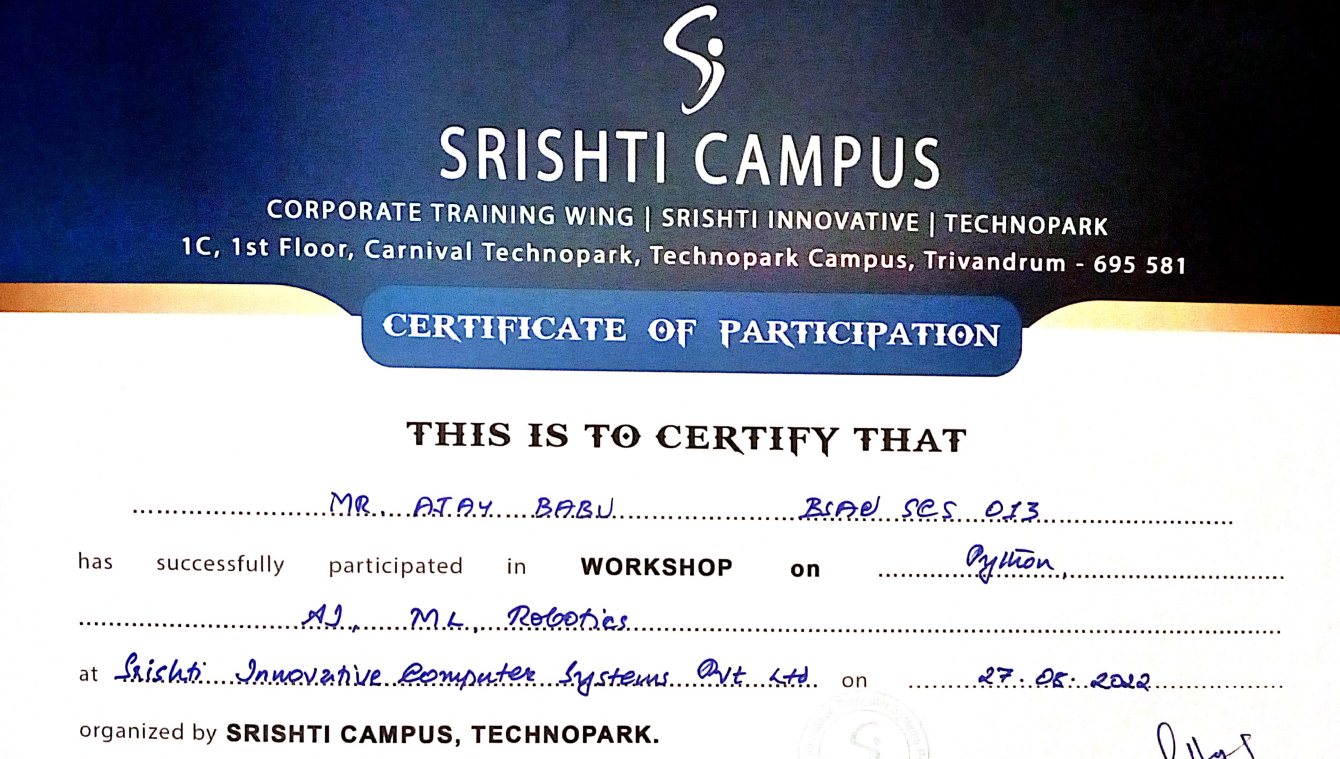 SRISHTI CAMPUS
CORPORATE TRAINING WING | SRISHTI INNOVATIVE | TECHNOPARK
1C, 1st Floor, Carnival Technopark, Technopark Campus, Trivandrum - 695 581
CERTIFICATE OF PARTICIPATION
THIS IS TO CERTIFY THAT
MR. AJAY BABU SCS 013
has successfully participated in WORKSHOP on Python,
AI, ML, Robotics
at Srishti Innovative Computer Systems Pvt Ltd on 27.08.2022
organized by SRISHTI CAMPUS, TECHNOPARK.